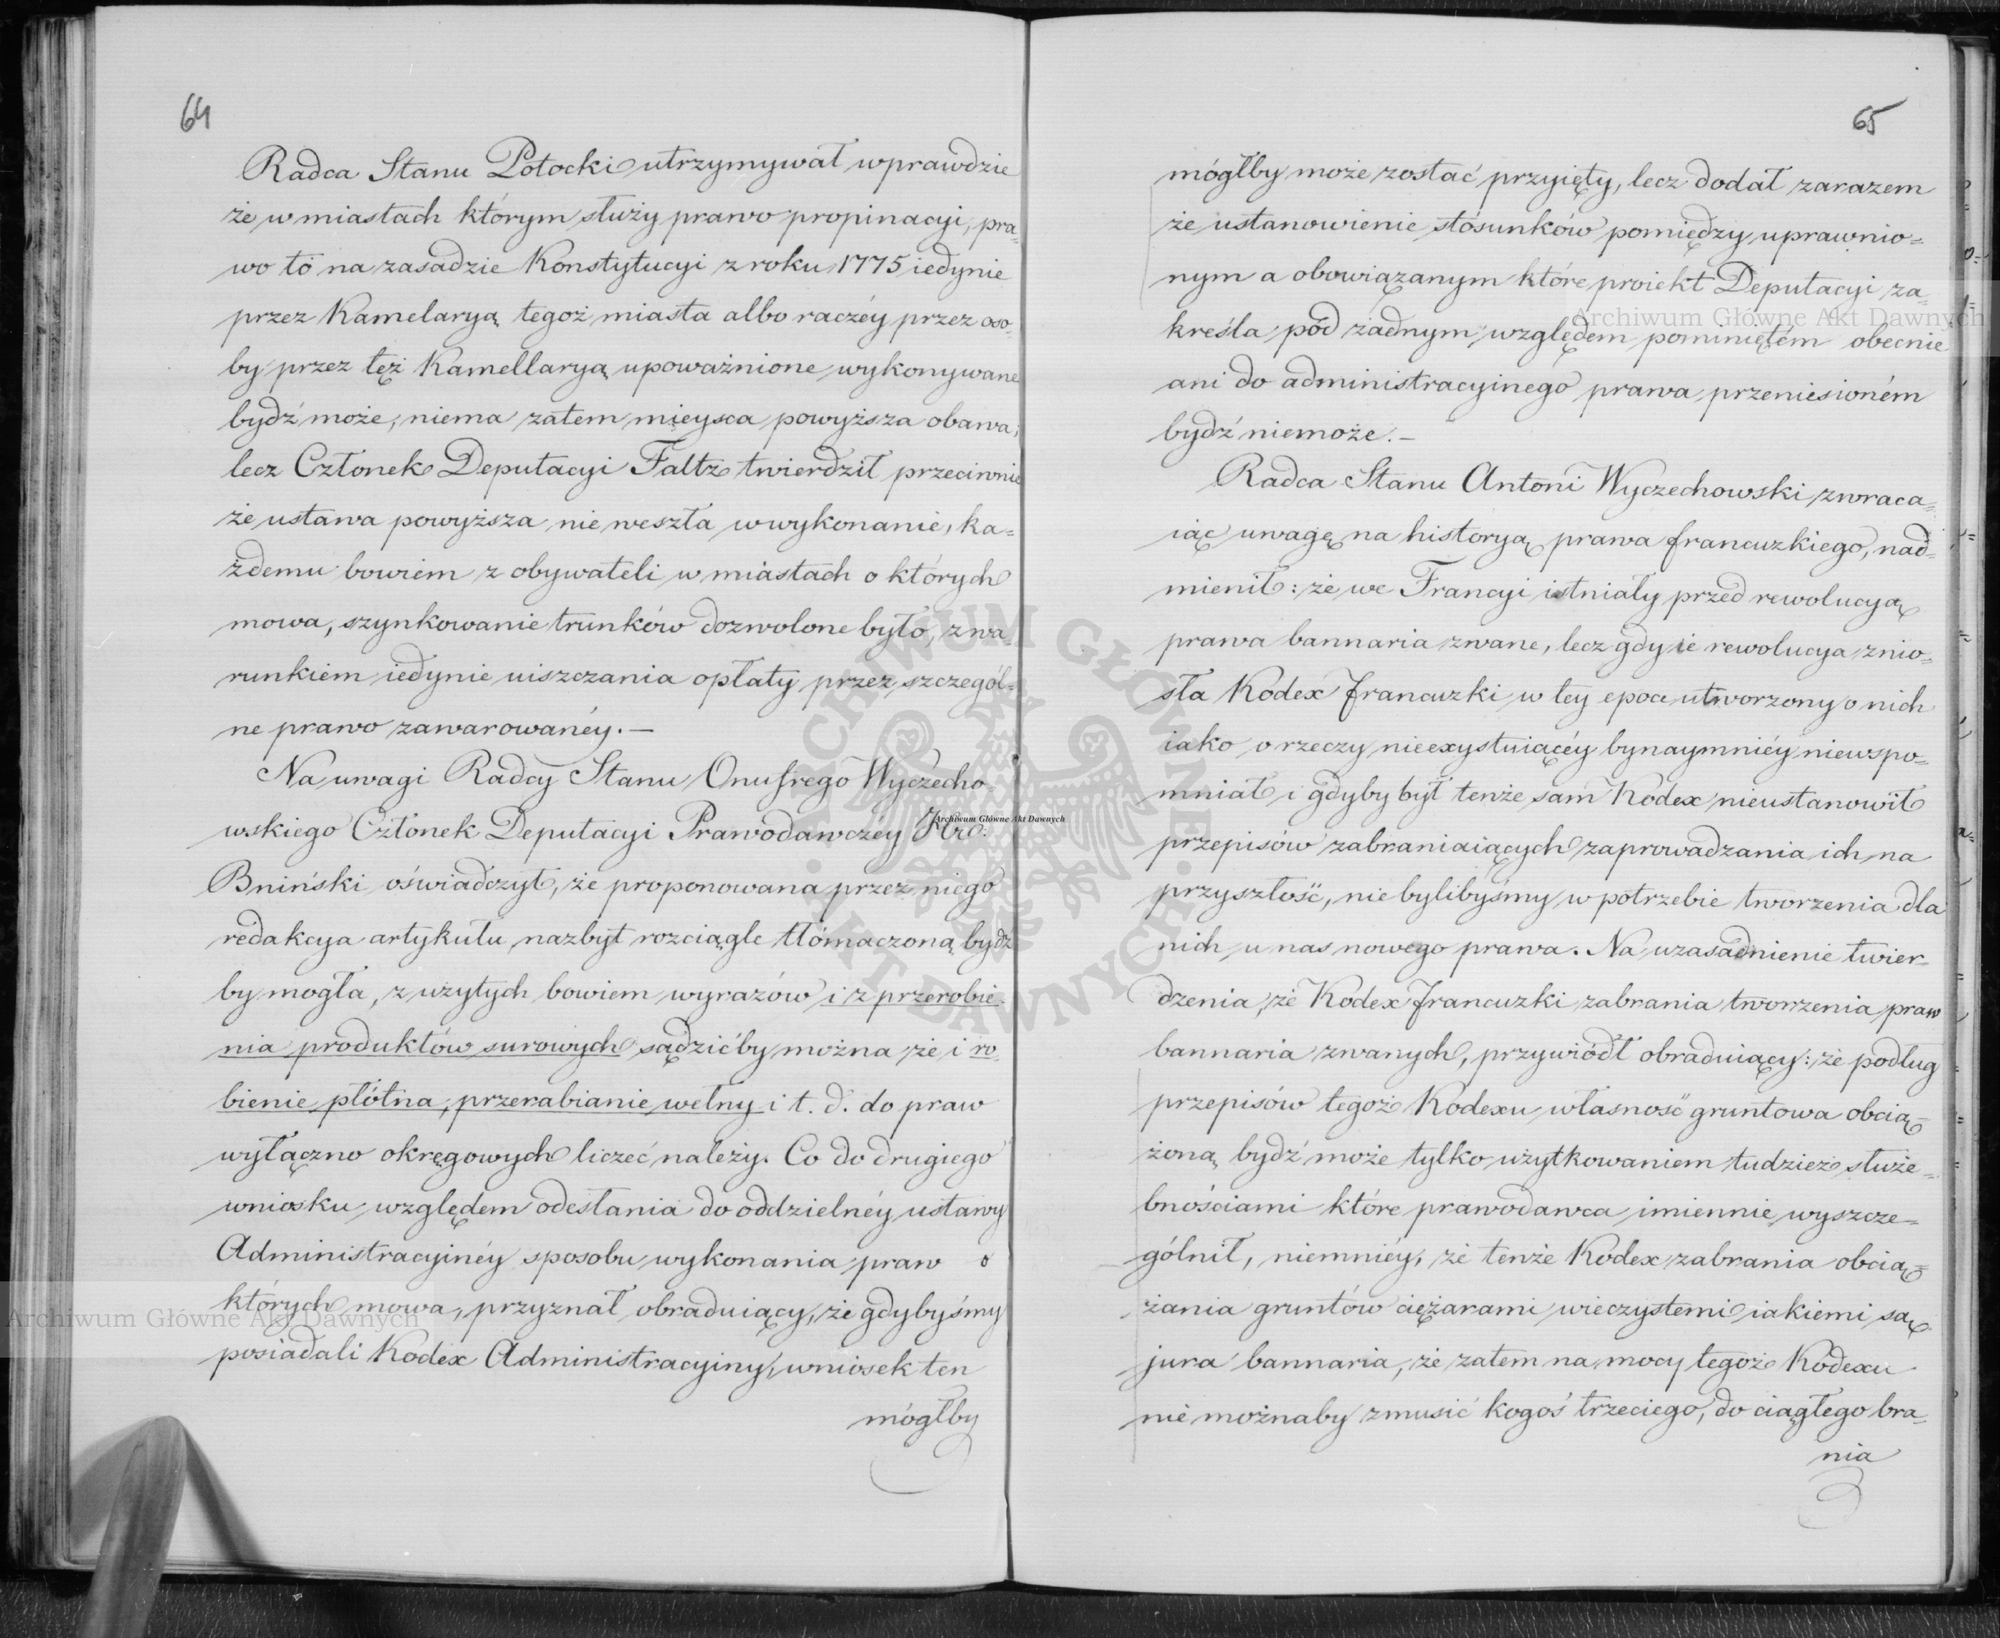 64
Radca Stanu Potocki utrzymywał wprawdzie
że w miastach którym służy prawo propinacyi, pra-
wo to na zasadzie Konstytucyi z roku 1775 iedynie
przez Kamelaryą tegoż miasta albo raczéy przez oso-
by przez tęż Kamellaryą upoważnione wykonywane
bydź może, niema zatem mieysca powyższa obawa,
lecz Członek Deputacyi Faltz twierdził przeciwnie
że ustawa powyższa nie weszła w wykonanie, ka-
żdemu bowiem z obywateli w miastach o których
mowa, szynkowanie trunków dozwolone było, z wa-
runkiem iedynie uiszczania opłaty przez szczegól-
ne prawo zawarowanéy. —
Na uwagi Radcy Stanu Onufrego Wyczecho
wskiego Członek Deputacyi Prawodawczéy Hr:
Bniński oświadczył, że proponowana przez niego
redakcya artykułu nazbyt rozciągle tłómaczoną bydź
by mogła, z użytych bowiem wyrazów i z przerobie-
nia produktów surowych sądzićby można że i ro-
bienie płótna, przerabianie wełny i t. d. do praw
wyłączno okręgowych liczeć należy. Co do drugiego
wniosku względem odesłania do oddzielnéy ustawy
Administracyinéy sposobu wykonania praw o
których mowa, przyznał obraduiący, że gdybyśmy
posiadali Kodex Administracyiny, wniosek ten
mógłby
65
mógłby może zostać przyięty, lecz dodał zarazem
że ustanowienie stósunków pomiędzy uprawnio-
nym a obowiązanym które proiekt Deputacyi za-
kreśla pod żadnym względem pominiętém obecnie
ani do administracyinego prawa przeniesioném
bydź niemoże. —
Radca Stanu Antoni Wyczechowski zwraca-
iąc uwagę na historyą prawa francuzkiego, nad-
mienił: że we Francyi istniały przed rewolucyą
prawa bannaria zwane, lecz gdy ie rewolucya znio-
sła Kodex francuzki w tey epoce utworzony o nich
iako o rzeczy nieexystuiącéy bynaymniéy niewspo-
mniał i gdyby był tenże sam Kodex nieustanowił
przepisów zabraniaiących zaprowadzania ich na
przyszłość, nie bylibyśmy w potrzebie tworzenia dla
nich u nas nowego prawa. Na uzasadnienie twier-
dzenia, że Kodex francuzki zabrania tworzenia praw
bannaria zwanych, przywiódł obraduiący: że podług
przepisów tegoż Kodexu własność gruntowa obcią-
żoną bydź może tylko użytkowaniem tudzież służe-
bnościami które prawodawca imiennie wyszcze-
gólnił, niemniéy, że tenże Kodex zabrania obcią-
żania gruntów ciężarami wieczystemi iakiemi są
jura bannaria, że zatem na mocy tegoż Kodexu
nie możnaby zmusić kogoś trzeciego, do ciągłego bra-
nia
Archiwum Główne Akt Dawnych
Archiwum Główne Akt Dawnych
Archiwum Główne Akt Dawnych
ARCHIWUM GŁÓWNE · AKT DAWNYCH ·